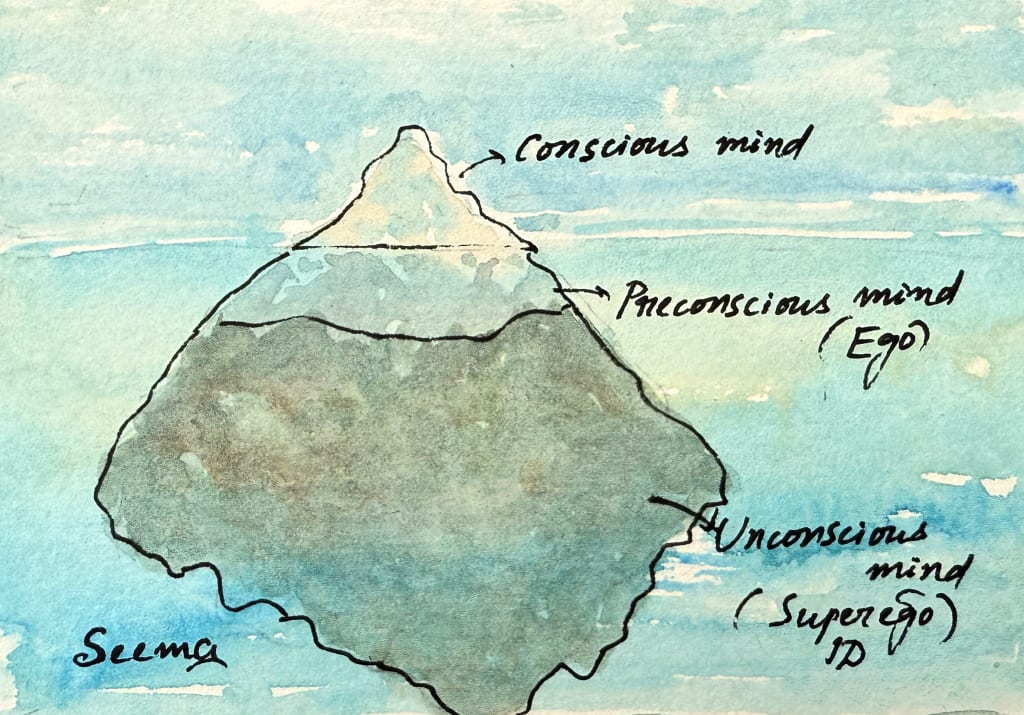 Conscious mind
Preconscious mind
(Ego)
Unconscious
mind
(Superego)
ID
Seema